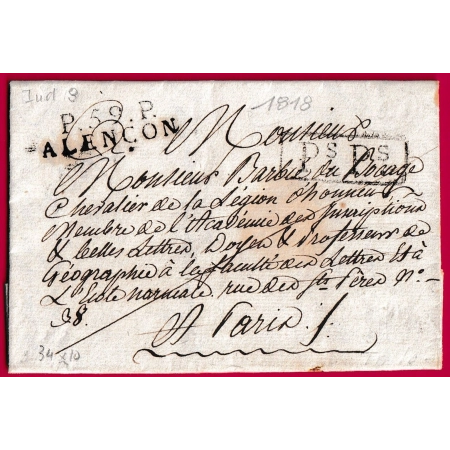 Ind 9
1818
P.59.P.
ALENÇON
Monsieur
PS PS
Monsieur Barbié du Bocage
Chevalier de la Légion d'honneur
Membre de l'Académie des Inscriptions
& belles Lettres, Doyen & Professeur de
Géographie à la faculté des Lettres Et à
L'Ecole normale, rue des Sts Pères No.
38.
A Paris
34